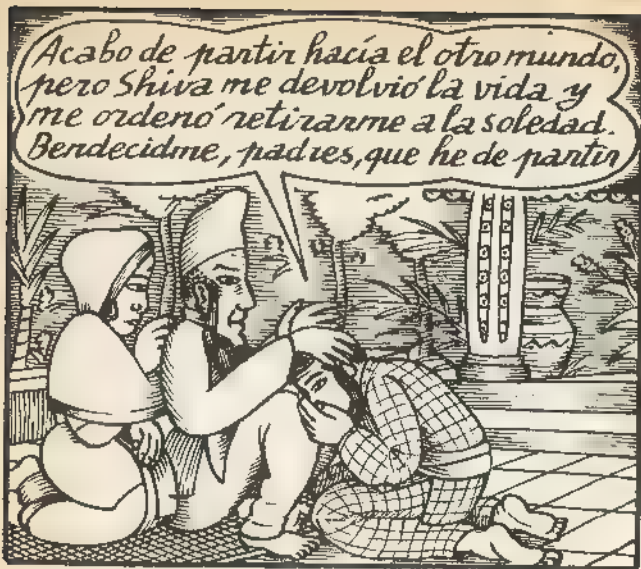 Acabo de partir hacía el otro mundo,
pero Shiva me devolvió la vida y
me ordenó retirarme a la soledad.
Bendecidme, padres, que he de partir